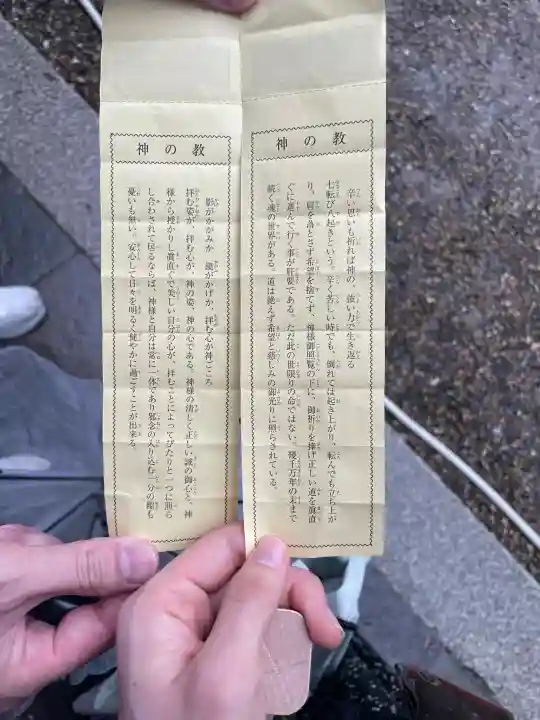 神の教
辛い思いも祈れば神の、強い力で生き返る
七転び八起きという。辛く苦しい時でも、倒れては起き上がり、転んでも立ち上が
り、肩を落とさず希望を捨てず、神様御照覧の下に、御祈りを捧げ正しい道を真直
ぐに進んで行く事が肝要である。ただ此の世限りの命ではない。幾千万年の末まで
続く魂の世界がある。道は絶えず希望と慈しみの御光りに照らされている。
神の教
影がかがみか 鏡がかげか、拝む心が神ごころ
拝む姿が、拝む心が、神の姿、神の心である。神様の清く正しい誠の御心と、神
様から授かりし真直ぐで美しい自分の心が、拝むことによってぴたりと一つに照ら
し合わされて居るならば、神様と自分は常に一体であり邪念の入り込む一分の隙も
憂いも無い。安心して日々を明るく健やかに過ごすことが出来る。